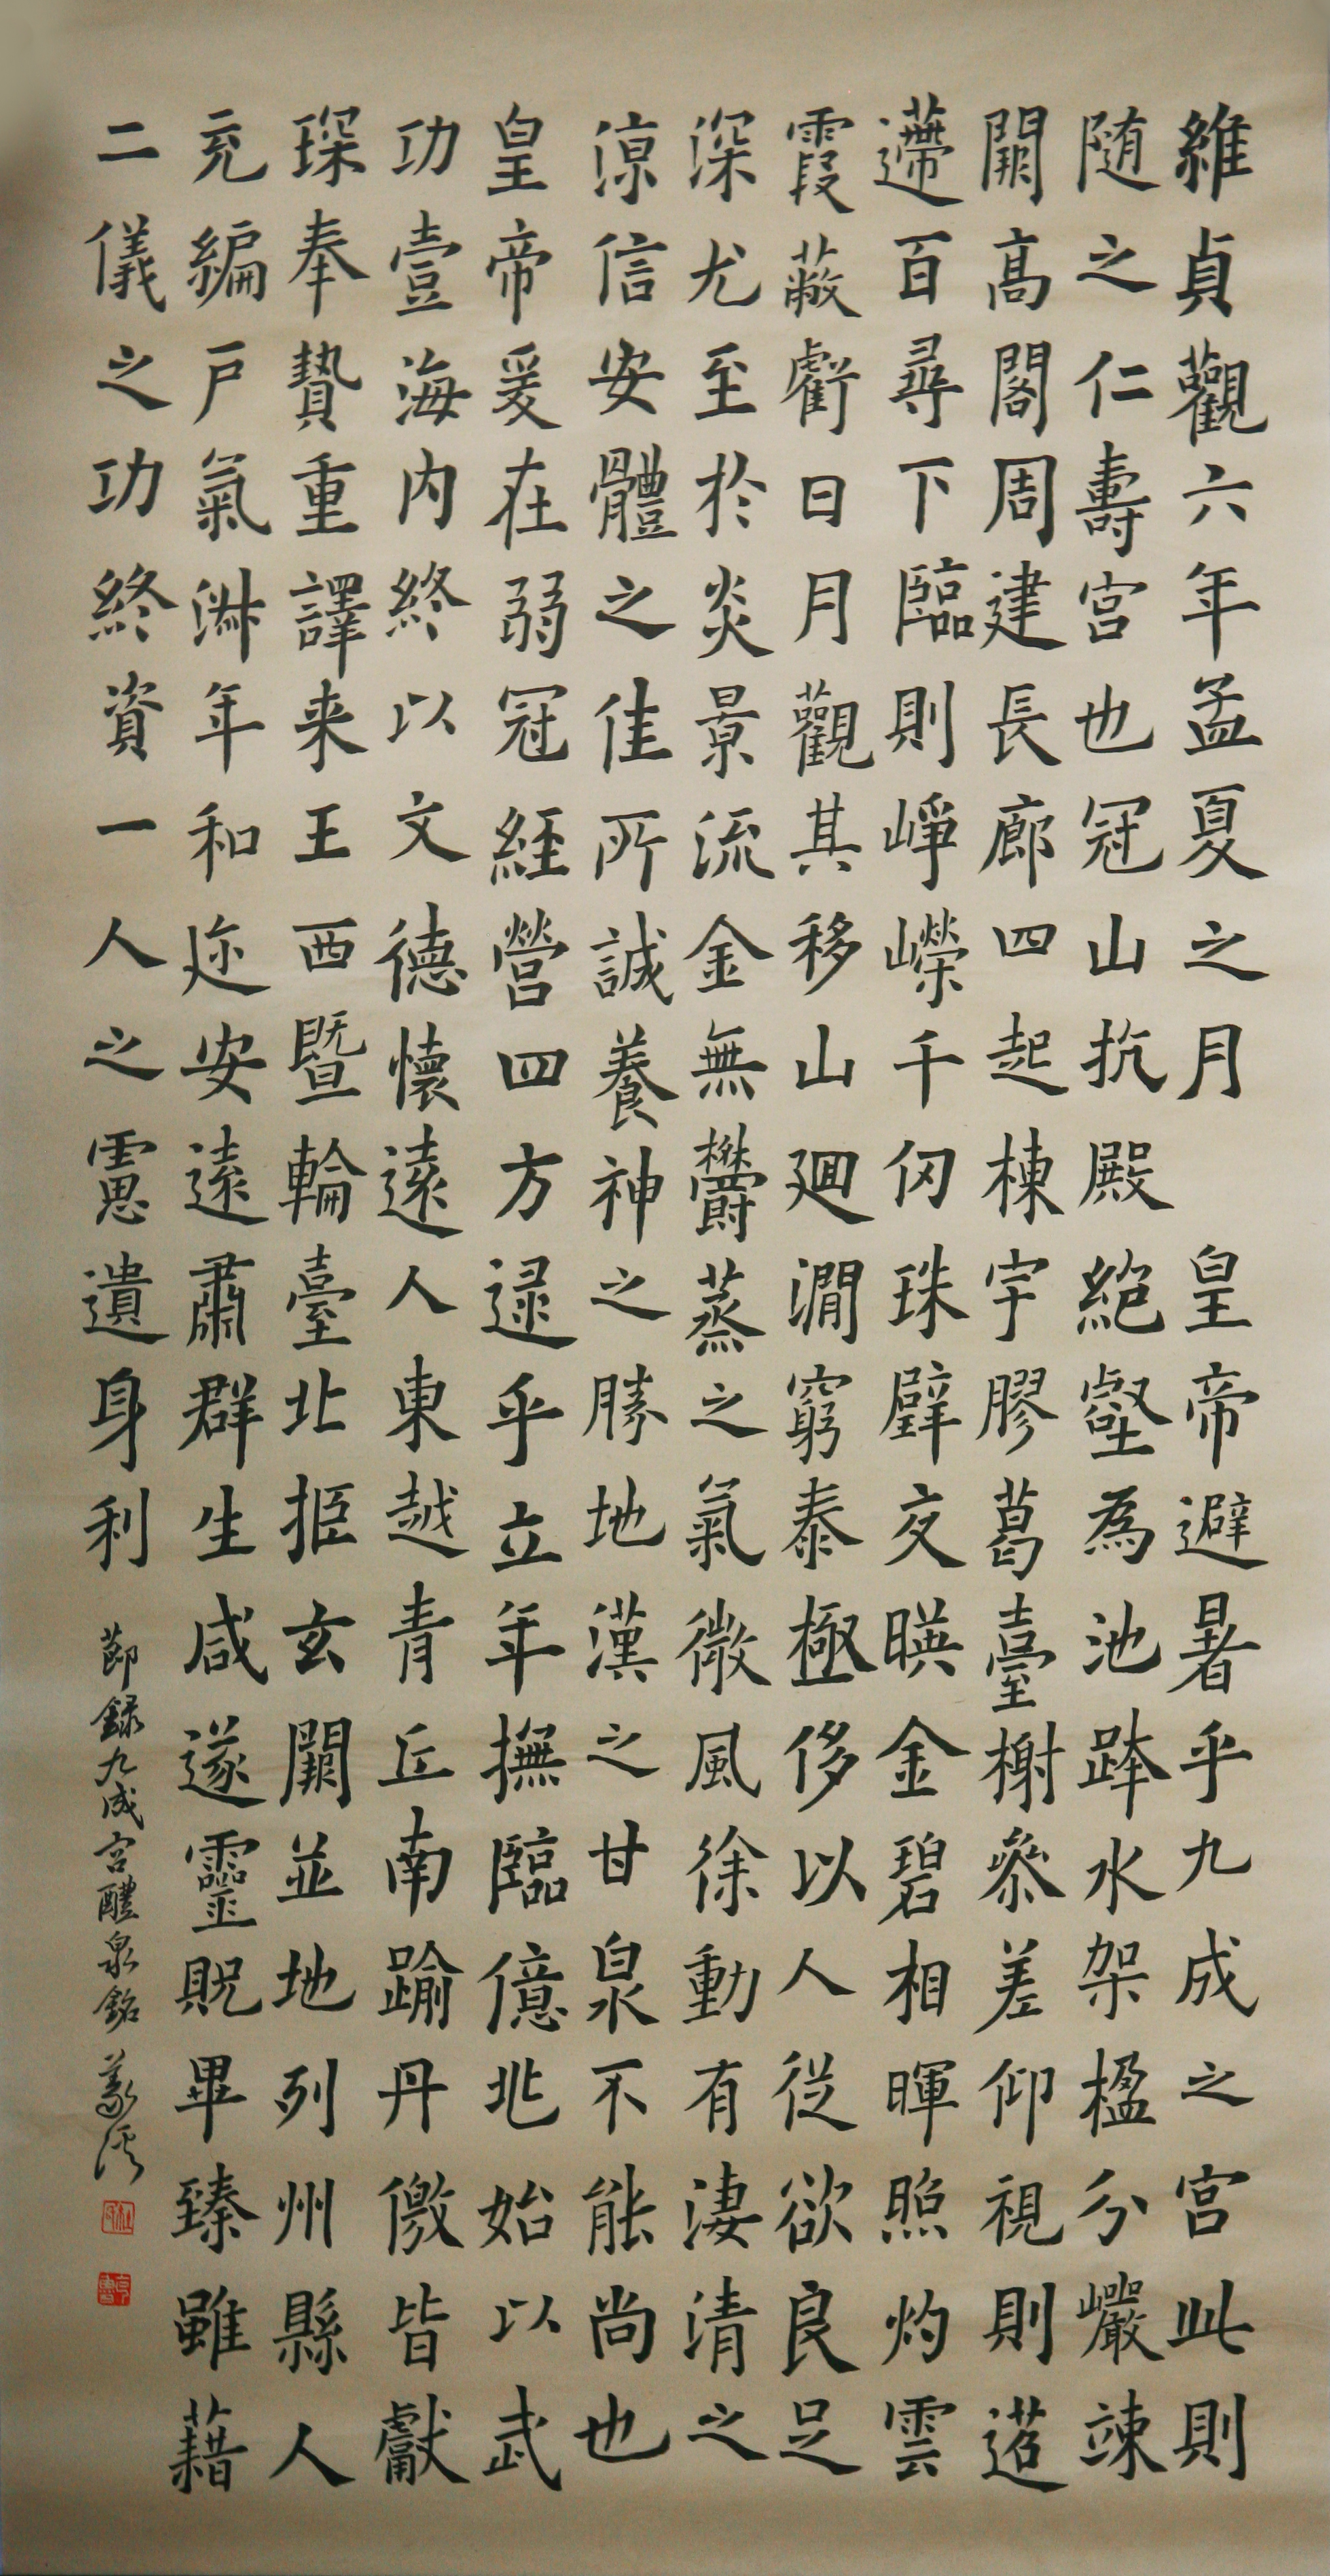 維貞觀六年孟夏之月　皇帝避暑乎九成之宮此則
随之仁壽宮也冠山抗殿絕壑為池跨水架楹分巖竦
闕高閣周建長廊四起棟宇膠葛臺榭參差仰視則迢
遰百尋下臨則崢嶸千仞珠璧交暎金碧相暉照灼雲
霞蔽虧日月觀其移山廻澗窮泰極侈以人從欲良足
深尤至於炎景流金無鬱蒸之氣微風徐動有淒清之
涼信安體之佳所誠養神之勝地漢之甘泉不能尚也
皇帝爰在弱冠經營四方逮乎立年撫臨億兆始以武
功壹海內終以文德懷遠人東越青丘南踰丹儌皆獻
琛奉贄重譯来王西暨輪臺北拒玄闕並地列州縣人
充編戶氣淑年和迩安遠肅群生咸遂靈貺畢臻雖藉
二儀之功終資一人之慮遺身利
節録九成宮醴泉銘